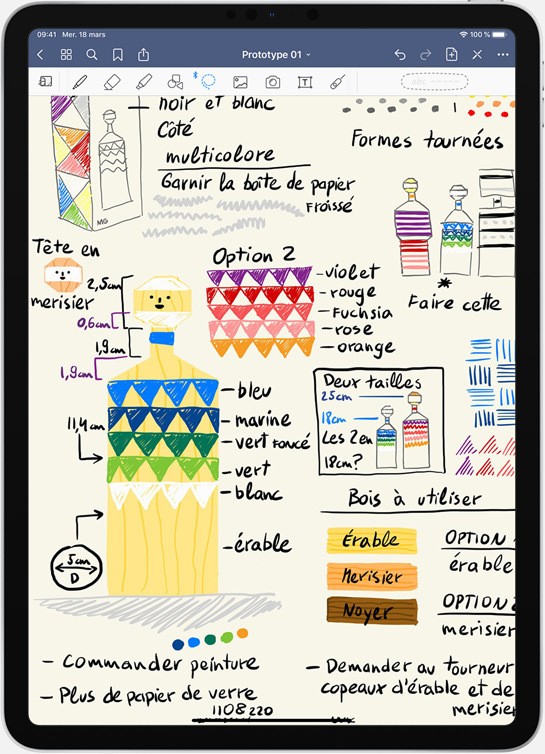 09:41 Mer. 18 mars
100 %
Prototype 01
noir et blanc
Côté
multicolore
Garnir la boîte de papier
Froissé
MG
Formes tournées
Tête en
merisier
2,5cm
0,6cm
1,9cm
1,9cm
11,4cm
5cm
D
Option 2
violet
rouge
Fuchsia
rose
orange
* Faire cette
bleu
marine
vert Foncé
vert
blanc
érable
Deux tailles
25cm
18cm
Les 2 en
18cm?
Bois à utiliser
Érable
Merisier
Noyer
OPTION
érable
OPTION
merisier
- Commander peinture
- Plus de papier de verre
1108220
- Demander au tourneur
copeaux d'érable et de
merisier